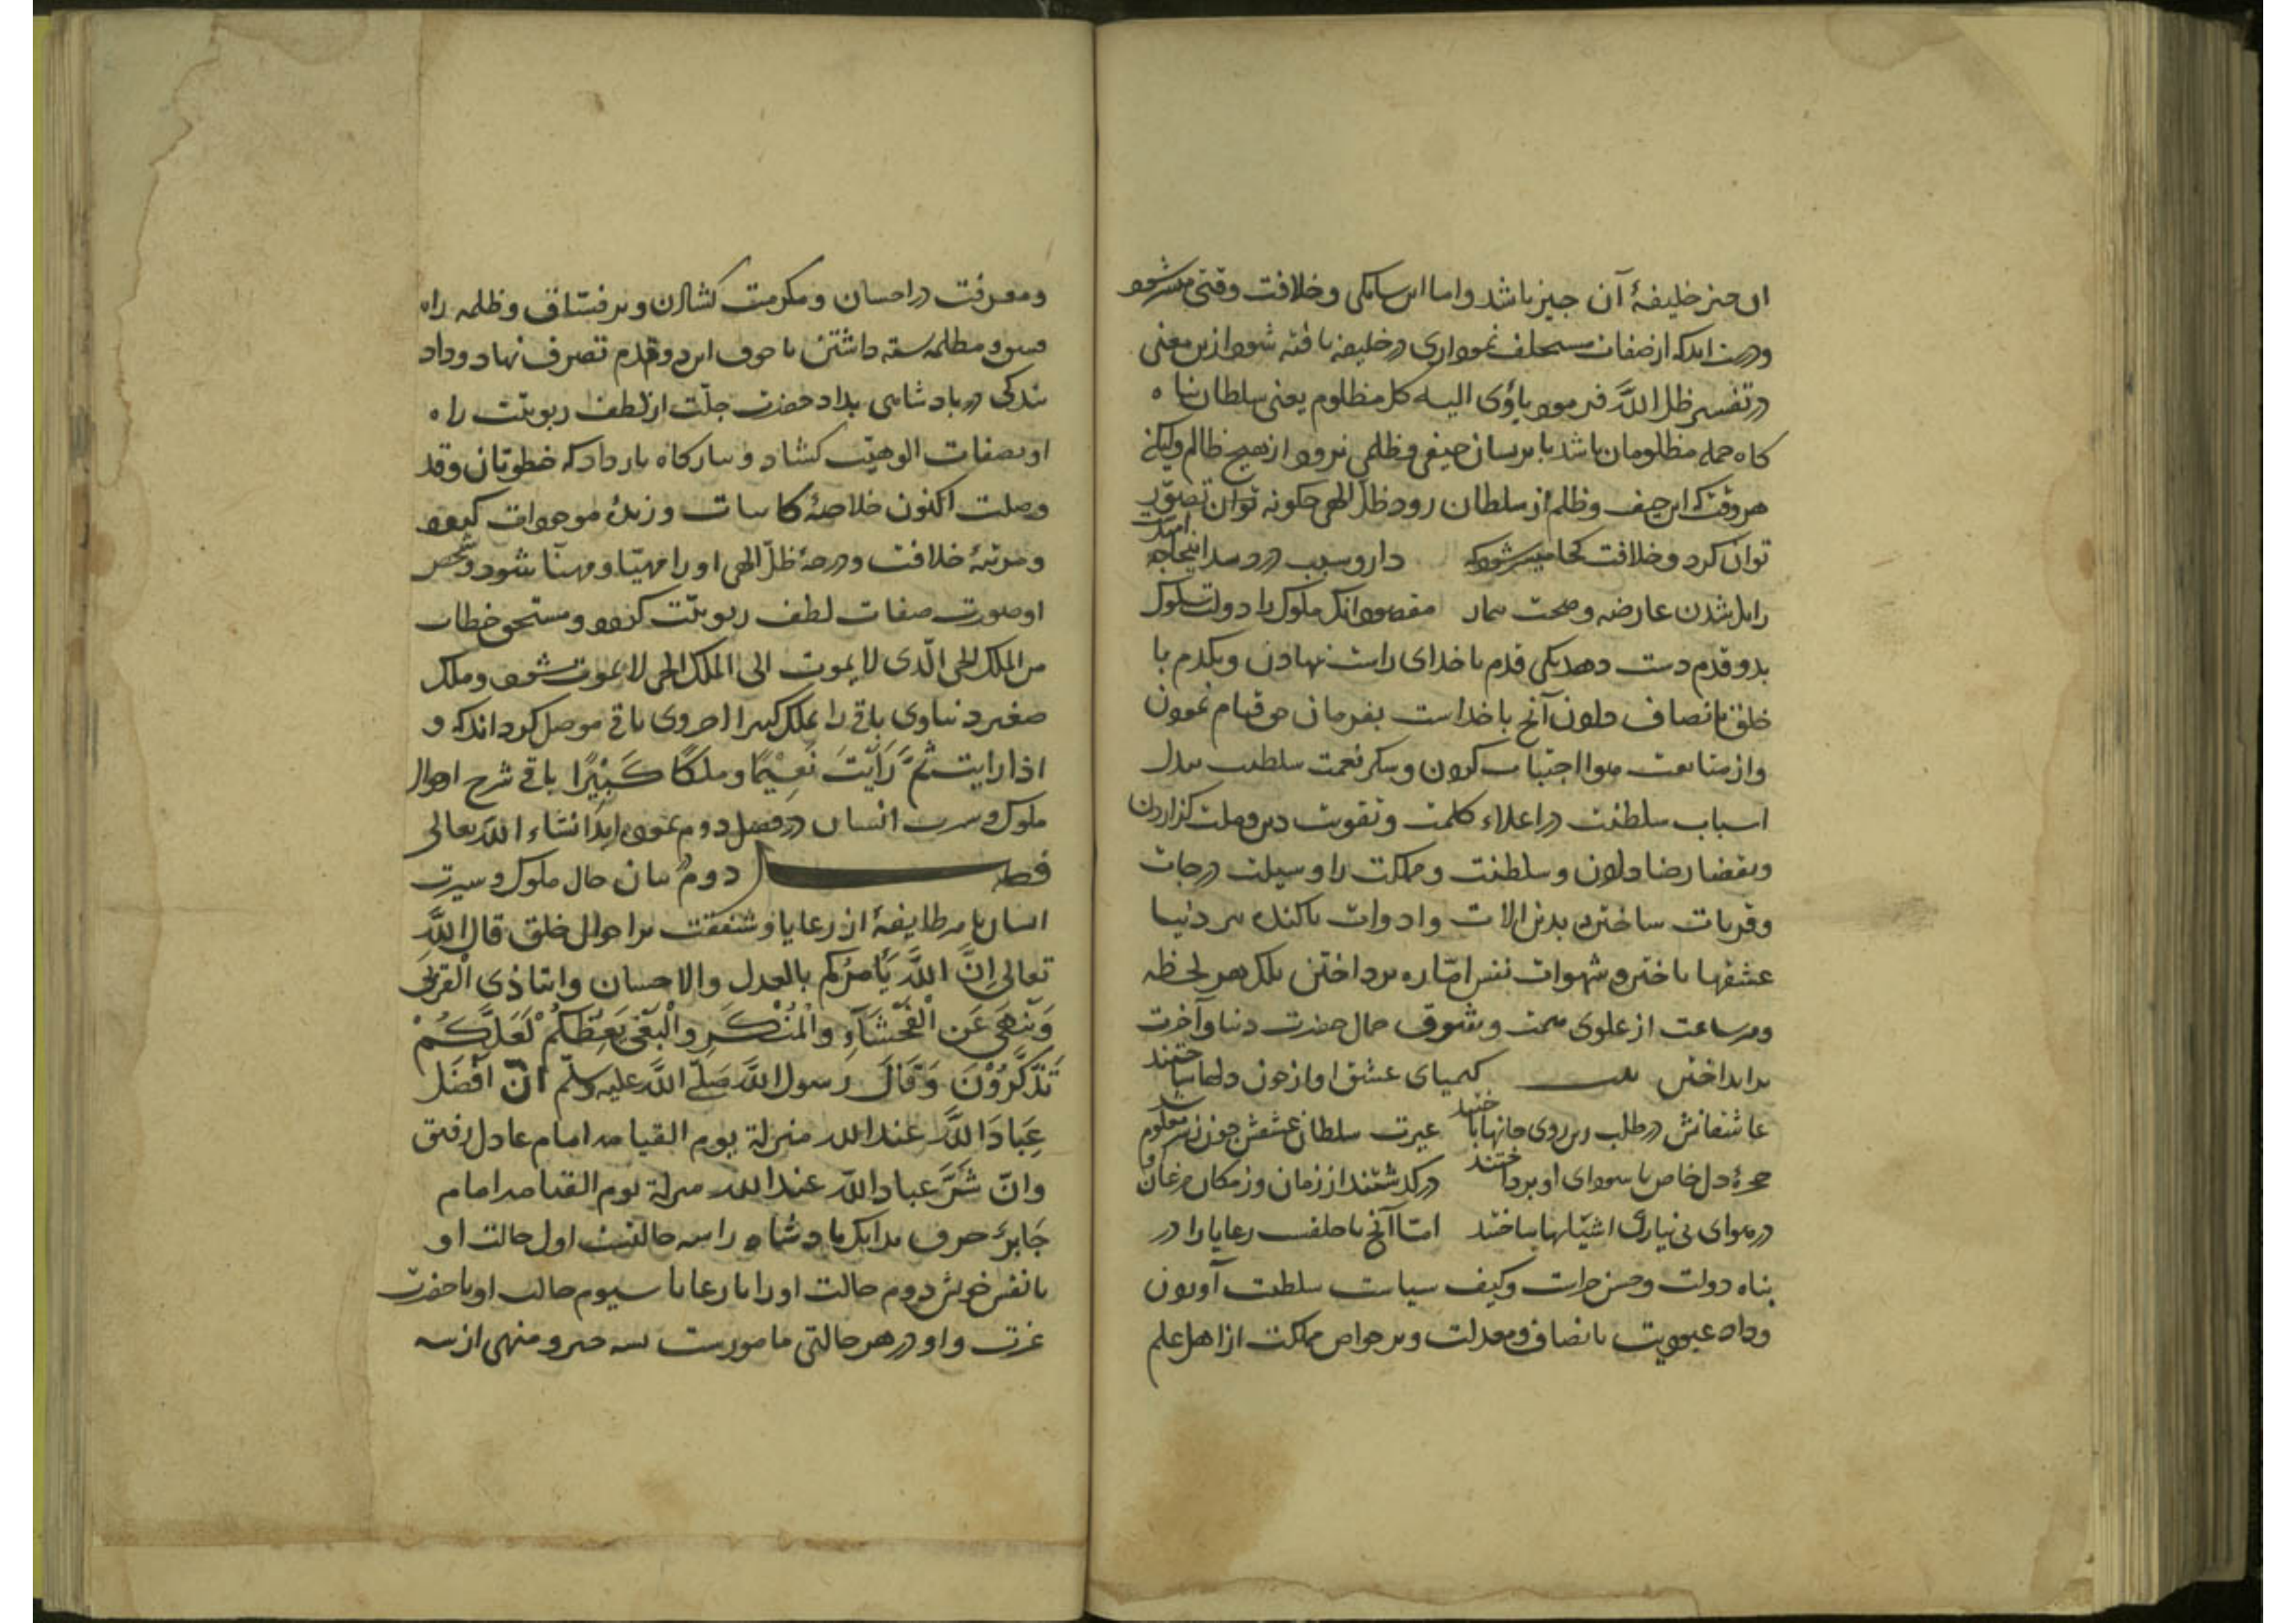 آن چیز خلیفهٔ آن چیز باشد واما این سایکی وخلافت وقتی میسر شود
ودرست اید که از صفات مستخلف نموداری در خلیفه یافته شود ازین معنی
در تفسیر ظل اللَّه فرمود یاؤی الیه کل مظلوم یعنی سلطان پناه
کاه جمله مظلومان باشد تا بریشان حیفی وظلمی نرود از هیچ ظالم ولیکن
هر وقت که این حیف وظلم از سلطان رود ظلّ الهی چکونه توان تصوّر
توان کرد وخلافت کجا میسر شود که دارو سبب درد شد اینجا چه امیدست
زایل شدن عارضه وصحت بیمار مقصود آنک ملوک را دولت سلوک
بدو قدم دست دهد یکی قدم با خدای راست نهادن ویکدم با
خلق بانصاف دادن آنچ با خداست بفرمان حق قیام نمودن
واز متابعت هوا اجتناب کردن وشکر نعمت سلطنت ببذل
اسباب سلطنت در اعلاء کلمت وتقویت دین وملت کزاردن
وبقضا رضا دادن وسلطنت ومملکت را وسیلت درجات
وقربات ساختن بدین الات وادوات باکنده پیر دنیا
عشقها باختن وشهوات نفس امّاره پرداختن بلک هر لحظه
وهر ساعت از علوی همت وبشوق جمال حضرت دنیا وآخرت
برانداختن بیت کیمیای عشق او از خون دلها ساختند
عاشقانش در طلب زین روی جانها باختند غیرت سلطان عشقش چون بسر معلوم شد
حجرهٔ دل خاص با سودای او پرداختند درکذشتند از زمان وز مکان مرغان او
در هوای بی نیازی اشیانها ساختند امّا آنچ با خلقست رعایا را در
پناه دولت وحسن حراست وکیف سیاست سلطنت آوردن
وداد عبودیت بانصاف ومعدلت وبر خواص مملکت از اهل علم
ومعرفت در احسان ومکرمت کشادن وبر فسّاق وظلمه راه
فسق ومظلمه بسته داشتن تا چون این دو قدم تصرف نهاد وداد
بندکی در پادشاهی بداد حضرت جلّت از لطف ربوبیّت راه
او بصفات الوهیّت کشاد وببارکاه بار داد که خطوتان وقد
وصلت اکنون خلاصهٔ کاینات وزبدهٔ موجودات کردد
ومرتبهٔ خلافت ودرجهٔ ظلّ الهی او را مهیّا ومهنّا شود وشخص
او صورت صفات لطف ربوبیّت کردد ومستحق خطاب
من الملک الحی الّذی لا یموت الی الملک الحی لا یموت شود وملک
صغیر دنیاوی باقی را بملک کبیر اخروی باقی موصل کرداند که و
اذا رایت ثَمَّ رَأَیْتَ نَعِیْمًا وملکًا کَبِیْرًا باقی شرح احوال
ملوک وسیرت ایشان در فصل دوم نموده اید انشاء اللّه تعالی
فصل دوم در بیان حال ملوک وسیرت
ایشان با هر طایفهٔ از رعایا وشفقت بر احوال خلق قال اللَّه
تعالی اِنَّ اللَّهَ یَأمُرُکم بالعدل والاحسان وایتاء ذی القربی
وَیَنْهَی عَنِ الْفَحْشَآءِ وَالْمُنْکَرِ وَالْبَغْیِ یَعِظُکُمْ لَعَلَّکُمْ
تَذَکَّرُوْنَ وَقَالَ رسول اللَّه صَلَّی اللَّه علیه وسلّم انّ اَفْضَلَ
عِبَادَ اللَّهِ عند الله منزلة یوم القیامه امام عادل رفیق
وانّ شَرَّ عباد اللّه عند الله منزلة یوم القیامه امام
جَابرٌ خرف بدانک پادشاه را سه حالتست اول حالت او
با نفس خویش دوم حالت او را با رعایا سیوم حالت او با حضرت
عزت واو در هر حالتی مامورست بسه چیز ومنهی از سه